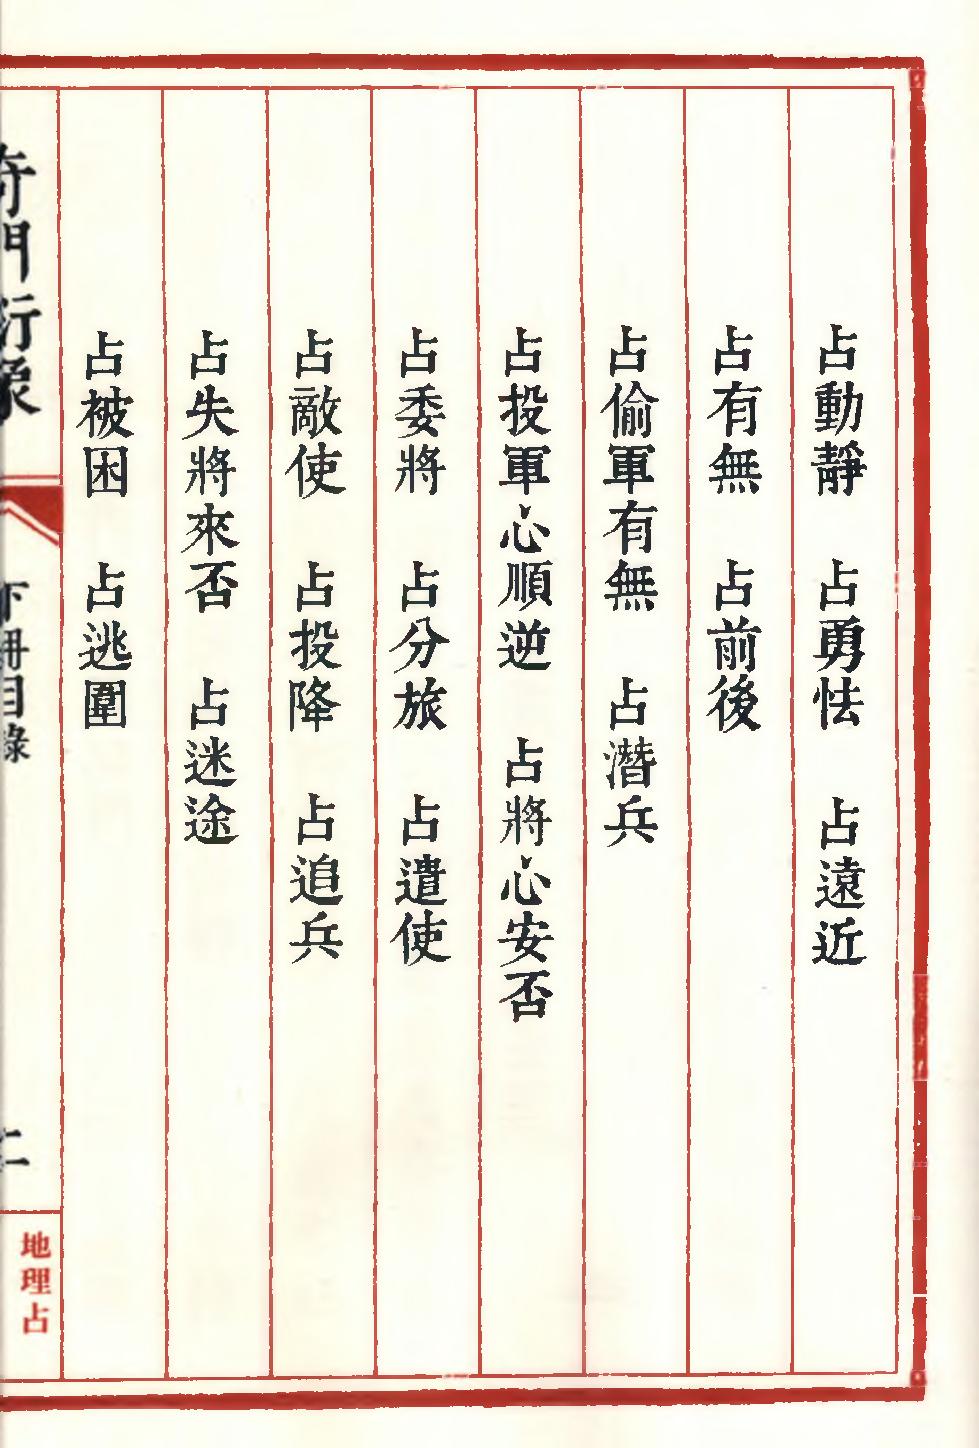 占動靜　占勇怯　占遠近
占有無　占前後
占偷軍有無　占潛兵
占投軍心順逆　占將心安否
占委將　占分旅　占遣使
占敵使　占投降　占追兵
占失將來否　占迷途
占被困　占逃圍
奇門衍象
下冊目錄
二
地理占